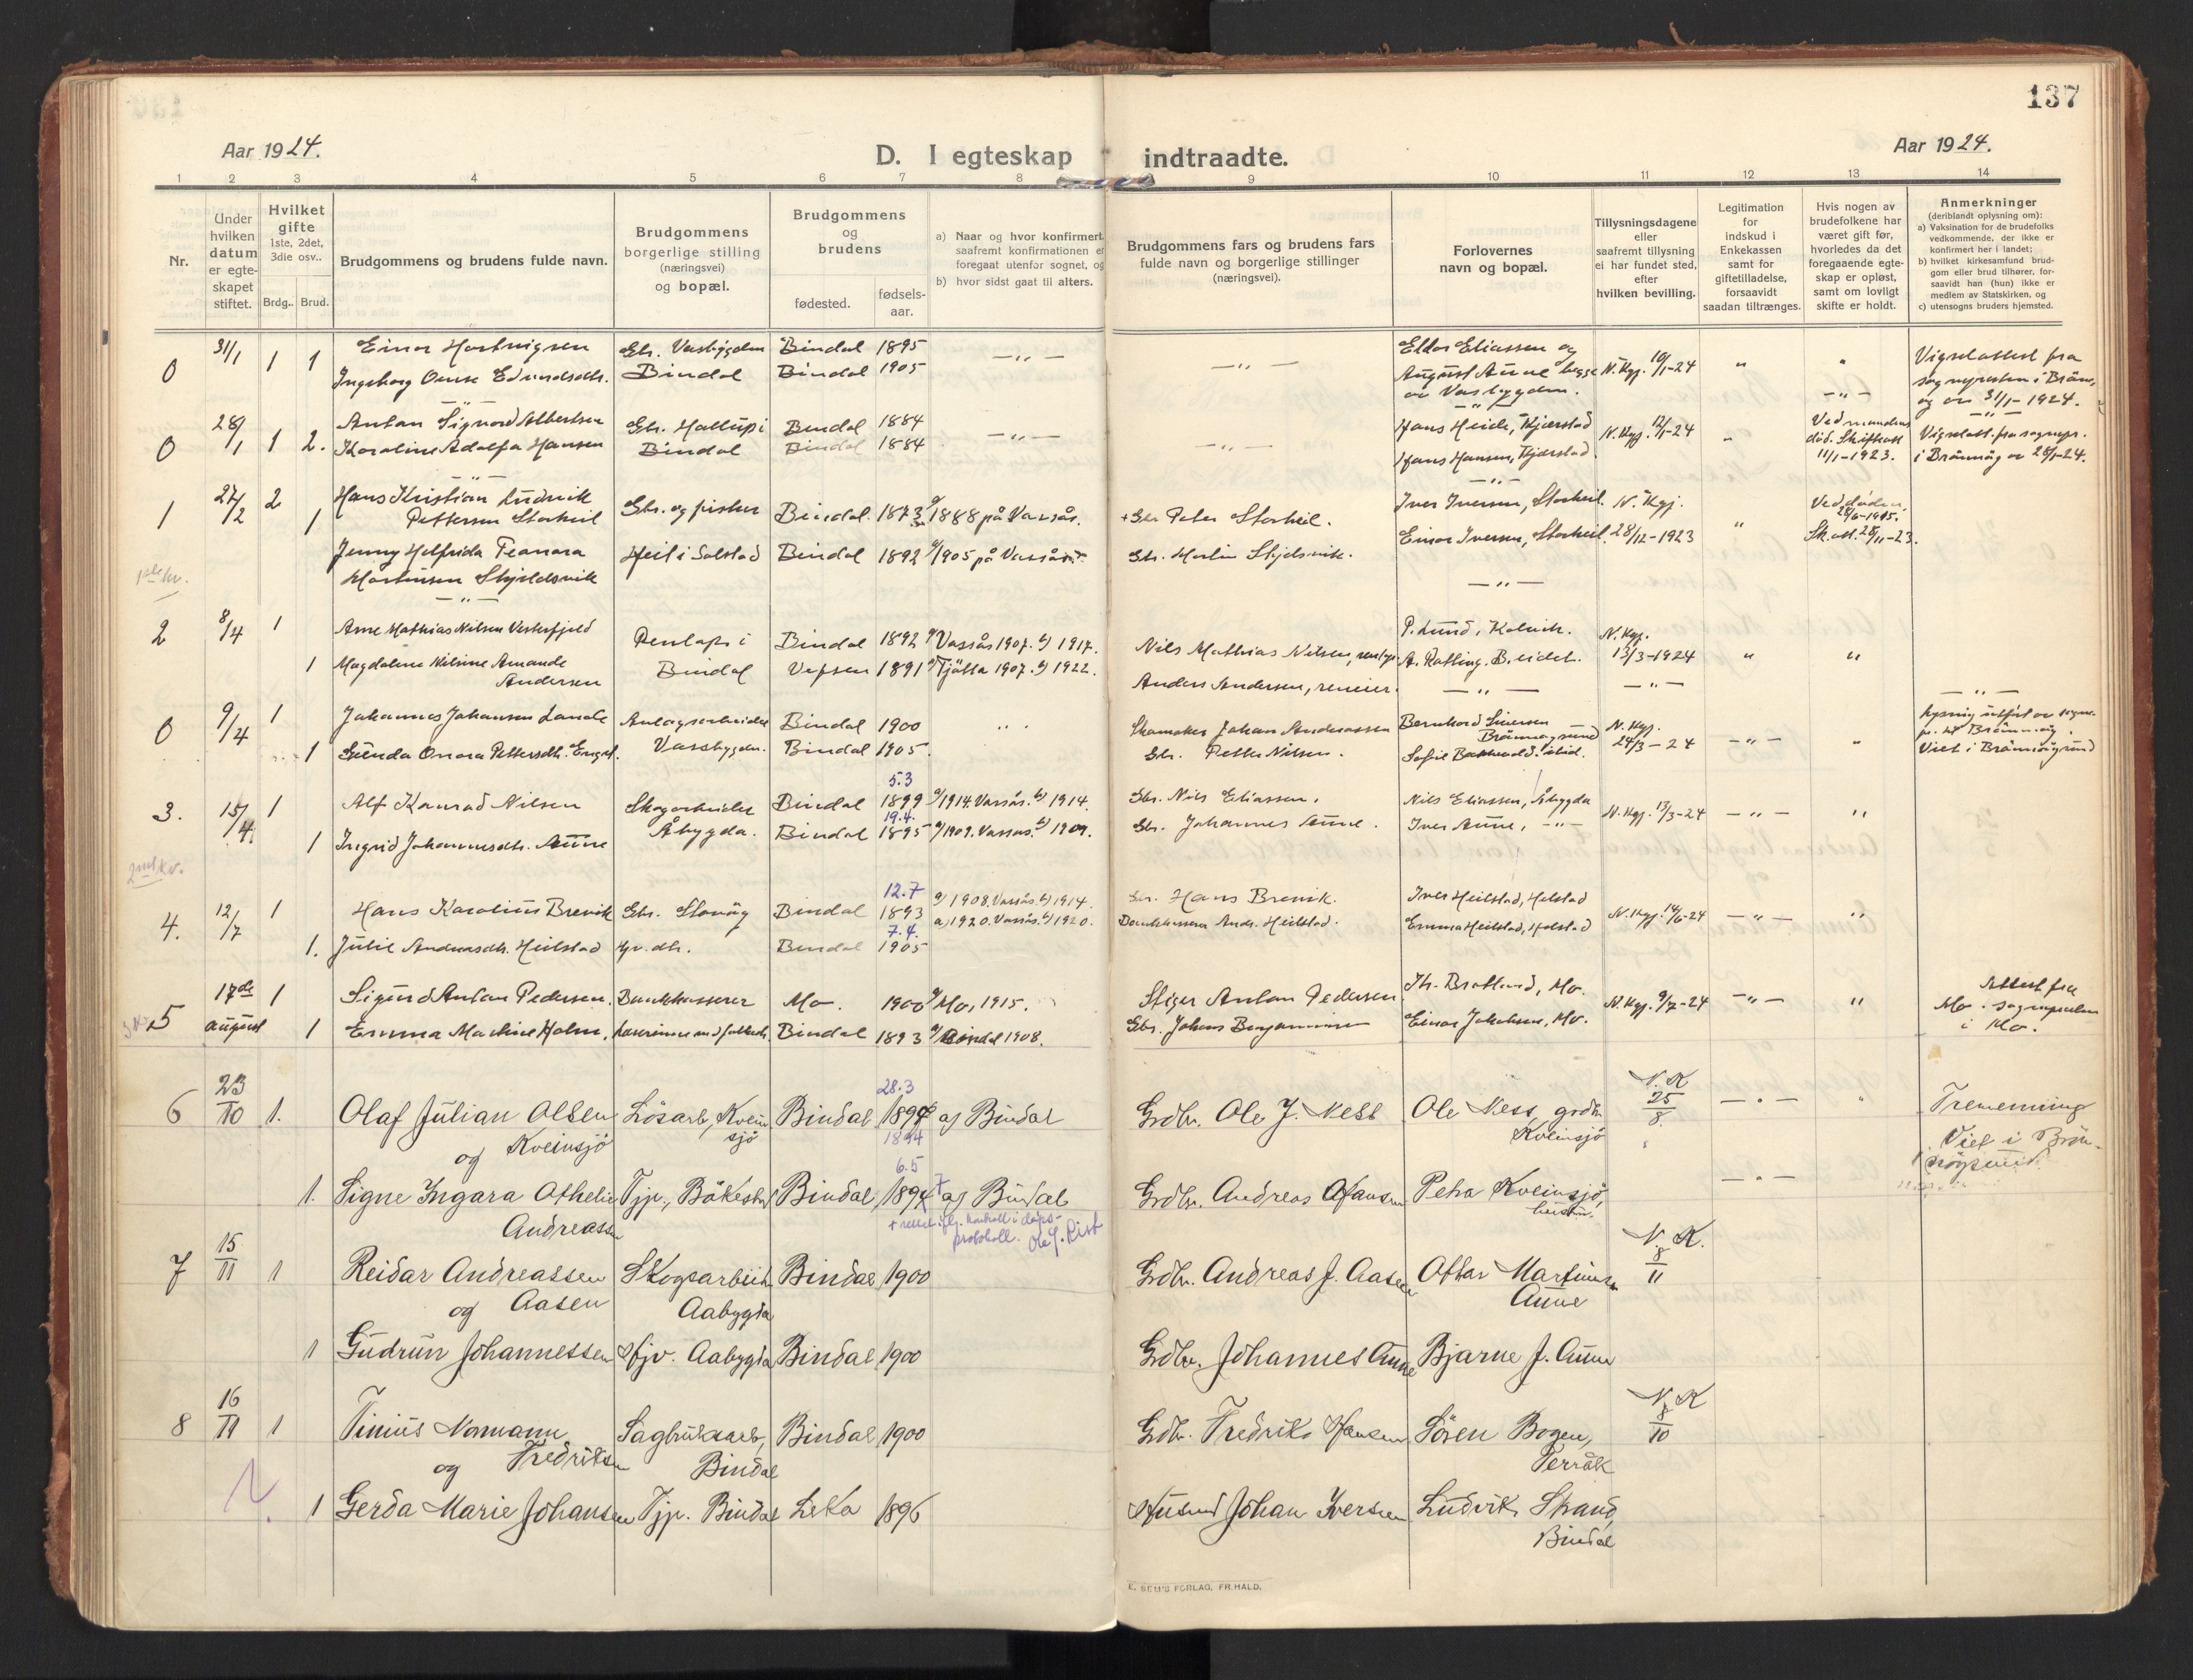 137
Aar 1924.
D. I egteskap indtraadte.
Aar 1924.
1 2 3 4 5 6 7 8 9 10 11 12 13 14
Nr.
Under
hvilken
datum
er egte-
skapet
stiftet.
Hvilket
gifte
1ste, 2det,
3die osv..
Brdg.. Brud.
Brudgommens og brudens fulde navn.
Brudgommens
borgerlige stilling
(næringsvei)
og bopæl.
Brudgommens
og
brudens
fødested.
fødsels-
aar.
a) Naar og hvor konfirmert
saafremt konfirmationen er
foregaat utenfor sognet, og
b) hvor sidst gaat til alters.
Brudgommens fars og brudens fars
fulde navn og borgerlige stillinger
(næringsvei).
Forlovernes
navn og bopæl.
Tillysningsdagene
eller
saafremt tillysning
ei har fundet sted,
efter
hvilken bevilling.
Legitimation
for
indskud i
Enkekassen
samt for
giftetilladelse,
forsaavidt
saadan tiltrænges.
Hvis nogen av
brudefolkene har
været gift før,
hvorledes da det
foregaaende egte-
skap er opløst,
samt om lovligt
skifte er holdt.
Anmerkninger
(deriblandt oplysning om):
a) Vaksination for de brudefolks
vedkommende, der ikke er
konfirmert her i landet;
b) hvilket kirkesamfund brud-
gom eller brud tilhører, for-
saavidt han (hun) ikke er
medlem av Statskirken, og
c) utensogns bruders hjemsted.
0 31/1 1 1 Einar Hartvigsen Gbr. Vasbygden Bindal 1895 — „ — — „ — Eldor Eliassen og N. Kgj. 10/1-24 „ „ Vigselattest fra
Ingeborg Edvardsdtr. Bindal Bindal 1905 August Aune begge
av Vasbygden. — „ — og av 31/1-1924.
0 28/1 1 2. Anton Sigvard Albertsen Gbr. i Bindal 1884 — „ — — „ — Hans Heide, Kjærstad N. Kgj. 12/1-24 „ Ved mandens
Karoline Adolfa Hansen Bindal Bindal 1884 Hans Hansen, Kjærstad død. Skifteatt Vigselatt. fra sognepr.
11/1-1923. i Brønnøy av 28/1-24.
1 27/2 2 Hans Kristian Ludvik Gbr. og fisker Bindal. 1873 a/1888 på Vassås. + Gbr Peter Storheil. Iver Iversen, Storheil. N. Kgj. Ved døden,
1 Pettersen Storheil
Jenny Helfrida Heil i Solstad Bindal 1892 a/1905 på Vassås Gbr. Martin Skjelsvik. Einar Iversen, Storheil. 28/12-1923 „ Sk. att. 28/11-23.
Martinsen Skjeldsvik — „ —
1ste kv. — „ —
2 8/4 1 Arne Mathias Nilsen Vesterfjeld Renlaps i Bindal 1892 a/Vassås 1907. b) 1917. Nils Mathias Nilsen, P. Lund, Kolvik. N. Kgj.
1 Magdaline Nilsine Amanda Bindal Vefsen 1891 a/Tjøtta 1907. b) 1922. A. 13/3-1924 „ „
Andersen Anders Andersen, reneier. — „ — — „ — — „ —
0 9/4 1 Johannes Johansen Lande Anlægsarbeider Bindal 1900 Skomaker Johan Andreassen Bernhard N. Kgj.
1 Gunda Onora Pettersdtr. Vassbygden. Bindal 1905. Gbr. Petter Nilsen. Brønnøysund 24/3-24 — „ — „ Viet i Brønnøysund
3. 15/4 1 Alf Konrad Nilsen Skogarbeider Bindal 5.3 1899 a/1914. Vassås. b) 1914. Gbr. Nils Eliassen. Nils Eliassen, Åbygda N. Kgj. 13/3-24 — „ — „
1 Ingrid Johannesdtr. Aune Åbygda. Bindal 19.4. 1895 a/1909. Vassås. b) 1909. Gbr. Johannes Aune. Iver Aune, — „ —
2net kv.
4. 12/7 1 Hans Karolius Brevik Gbr. Bindal 12.7 1893 a/1908. Vassås. b) 1914. Gbr. Hans Brevik. Iver Heilstad, Holstad N. Kgj. 14/6-24 — „ — „
1. Julie Andreasdtr. Heilstad Gbr. dtr. Bindal 7.4. 1905 a) 1920. Vassås. b) 1920. Bankkasserer Andr. Heilstad. Emma Heilstad, Holstad
5 17de 1 Sigurd Anton Pedersen. Bankkasserer Mo. 1900 a/Mo, 1915. Stiger Anton Pedersen Th. Bratland, Mo. N. Kgj. 9/7-24 — „ — „ Attest fra
august 1 Emma Maskine Holm. Lærerinne Bindal 1893 a/Bindal 1908. Gbr. Johans Benjaminsen Einar Jakobsen, Mo. i Mo.
6 23/10 1. Olaf Julian Olsen Løsarb, Kvein Bindal 28.3 1894 a) Bindal Grdbr. Ole J. Ness Ole Ness, grdbr. N. K 25/8. — „ — „ Tremenning
og Kveinsjø sjø 1894 Kveinsjø Viet i Brøn-
nøysund.
1. Signe Ingara Othelie Tjp., Bøkestad Bindal 6.5 1894 + a) Bindal Grdbr. Andreas Hansen Petra Kveinsjø, — „ —
Andreassen + rettet ifl. kontroll i dåps-
protokoll.
7 15/11 1 Reidar Andreassen Skogsarbeid. Bindal 1900 Grdbr. Andreas J. Aasen Ottar Martinsen N. K. 8/11
og Aasen Aabygda Aune
1 Gudrun Johannessen Hjv. Aabygda Bindal 1900 Grdbr. Johannes Aune Bjarne J. Aune
8 16/11 1 Tinius Normann Sagbruksarb, Bindal 1900 Grdbr. Fredrik Hansen Søren Bogen, N. K 8/10
og Fredriksen Bindal Terråk
1 Gerda Marie Johansen Tjp. Bindal Leka 1896 Husmd Johan Iversen Ludvik Strand,
Bindal
E. SEM'S FORLAG, FR.HALD.